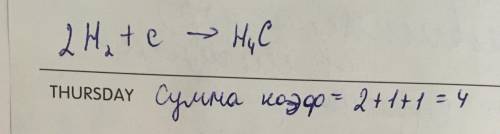 2H₂ + c → H₄C
THURSDAY Сумма коэф = 2+1+1 = 4